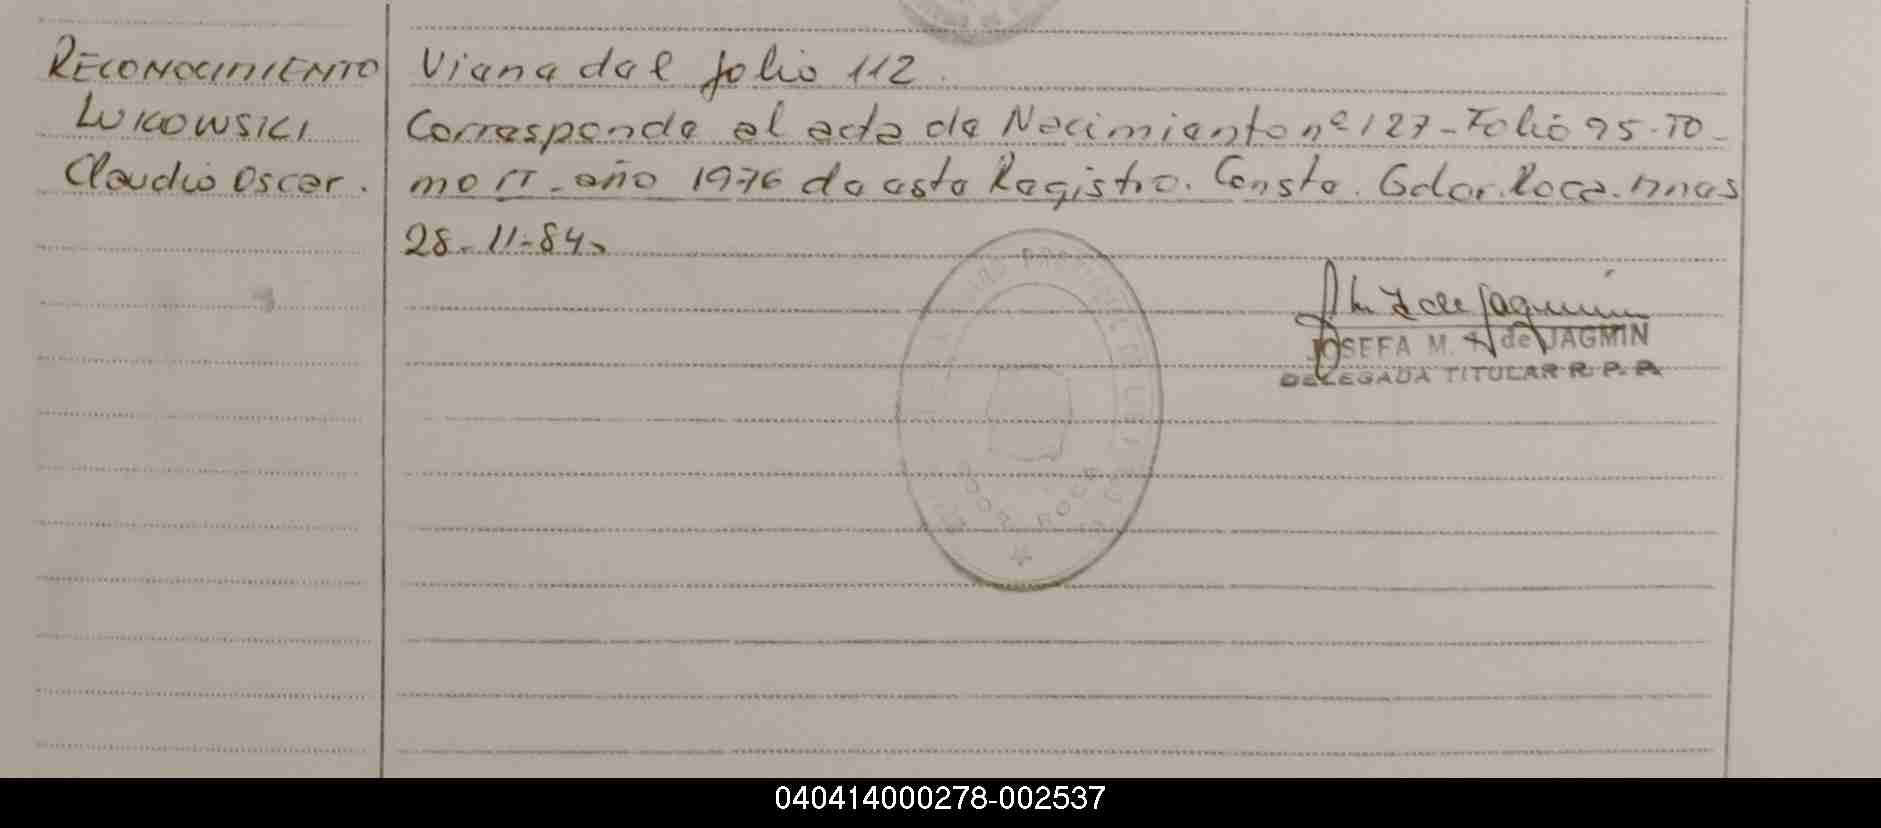 RECONOCIMIENTO
LUKOWSKI
Claudio Oscar.
Viene del folio 112.
Corresponde al acta de Nacimiento nº 127 - Folio 95 - To-
mo II - año 1976 de este Registro. Conste. Gdor. Roca. Mnes
28-11-84.
JOSEFA M. de JAGMIN
DELEGADA TITULAR R. P. P.
GDOR ROCA
040414000278-002537